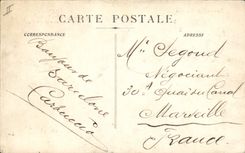 CARTE POSTALE
CORRESPONDANCE
ADRESSE
Bonjour de
Barcelone
Mr Segond
Négociant
30 Quai du Canal
Marseille
France